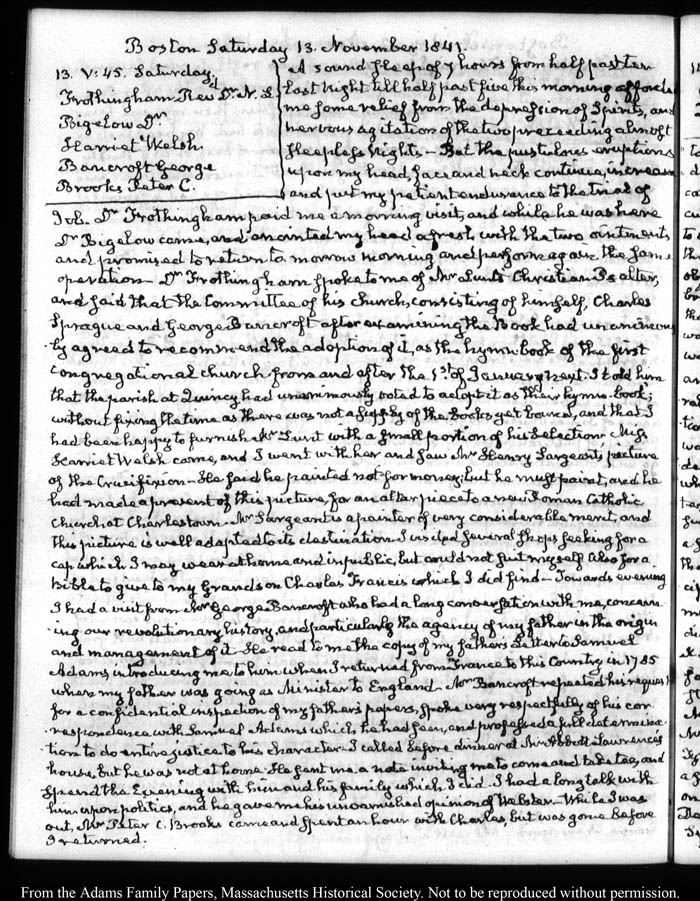 Boston Saturday 13. November 1841.
13. V: 45. Saturday
Frothingham Revd Dr N. L
Bigelow Dr
Harriet Welsh
Bancroft George
Brooks Peter C.
A sound sleep of 7 hours from half past ten
last Night till half past five this morning afforded
me some relief from the depression of Spirits, and
nervous agitation of the two preceeding almost
sleepless Nights – But the pustulous eruptions
upon my head, face and neck continue, increase
and put my patient endurance to the trial of
Job. Dr Frothingham paid me a morning visit, and while he was here
Dr Bigelow came, and anointed my head afresh with the two ointments
and promised to return to morrow morning and perform again the same
operation – Dr Frothingham spoke to me of Mr Lunt's Christian Psalter,
and said that the Committee of his church, consisting of himself, Charles
Sprague and George Bancroft after examining the Book had unanimous
ly agreed to recommend the adoption of it, as the hymn book of the first
congregational church from and after the 1st of January next. I told him
that the parish at Quincy had unanimously voted to adopt it as their hymn-book;
without fixing the time as there was not a supply of the books yet bound, and that I
had been happy to furnish Mr Lunt with a small portion of his Selection. Miss
Harriet Welsh came, and I went with her and saw Mr Henry Sargent's picture
of the Crucifixion – He said he painted not for money, but he must paint, and he
had made a present of this picture, for an altar piece to a new Roman Catholic
Church at Charlestown. Mr Sargeant is a painter of very considerable merit, and
this picture is well adapted to its destination. I visited several shops seeking for a
cap which I may wear at home and in public, but could not suit myself. Also for a
bible to give to my Grandson Charles Francis which I did find – Towards evening
I had a visit from Mr George Bancroft who had a long conversation with me, concern
ing our revolutionary history, and particularly the agency of my father in the origin
and management of it. He read to me the copy of my father's Letter to Samuel
Adams, introducing me to him when I returned from France to this Country in 1785
when my father was going as Minister to England. Mr Bancroft repeated his request
for a confidential inspection of my father's papers, spoke very respectfully of his cor
respondence with Samuel Adams which he had seen, and professed a full determina
tion to do entire justice to his character – I called before dinner at Mr Abbott Lawrence's
house, but he was not at home. He sent me a note inviting me to come and take tea, and
spend the Evening with him and his family which I did. I had a long talk with
him upon politics, and he gave me his unvarnished opinion of Webster – While I was
out, Mr Peter C. Brooks came and spent an hour with Charles, but was gone before
I returned.
From the Adams Family Papers, Massachusetts Historical Society. Not to be reproduced without permission.